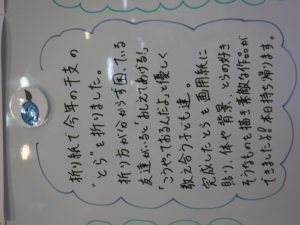 折り紙で今年の干支の
"とら"を折りました。
折り方が分からず困っている
友達がいると「おしえてあげる！」
「こうやっておるんだよ」と優しく
教え合う子ども達。
完成したとらを画用紙に
貼り、体や背景、とらの好き
そうなものを描き素敵な作品が
できましたよ！本日持ち帰ります。